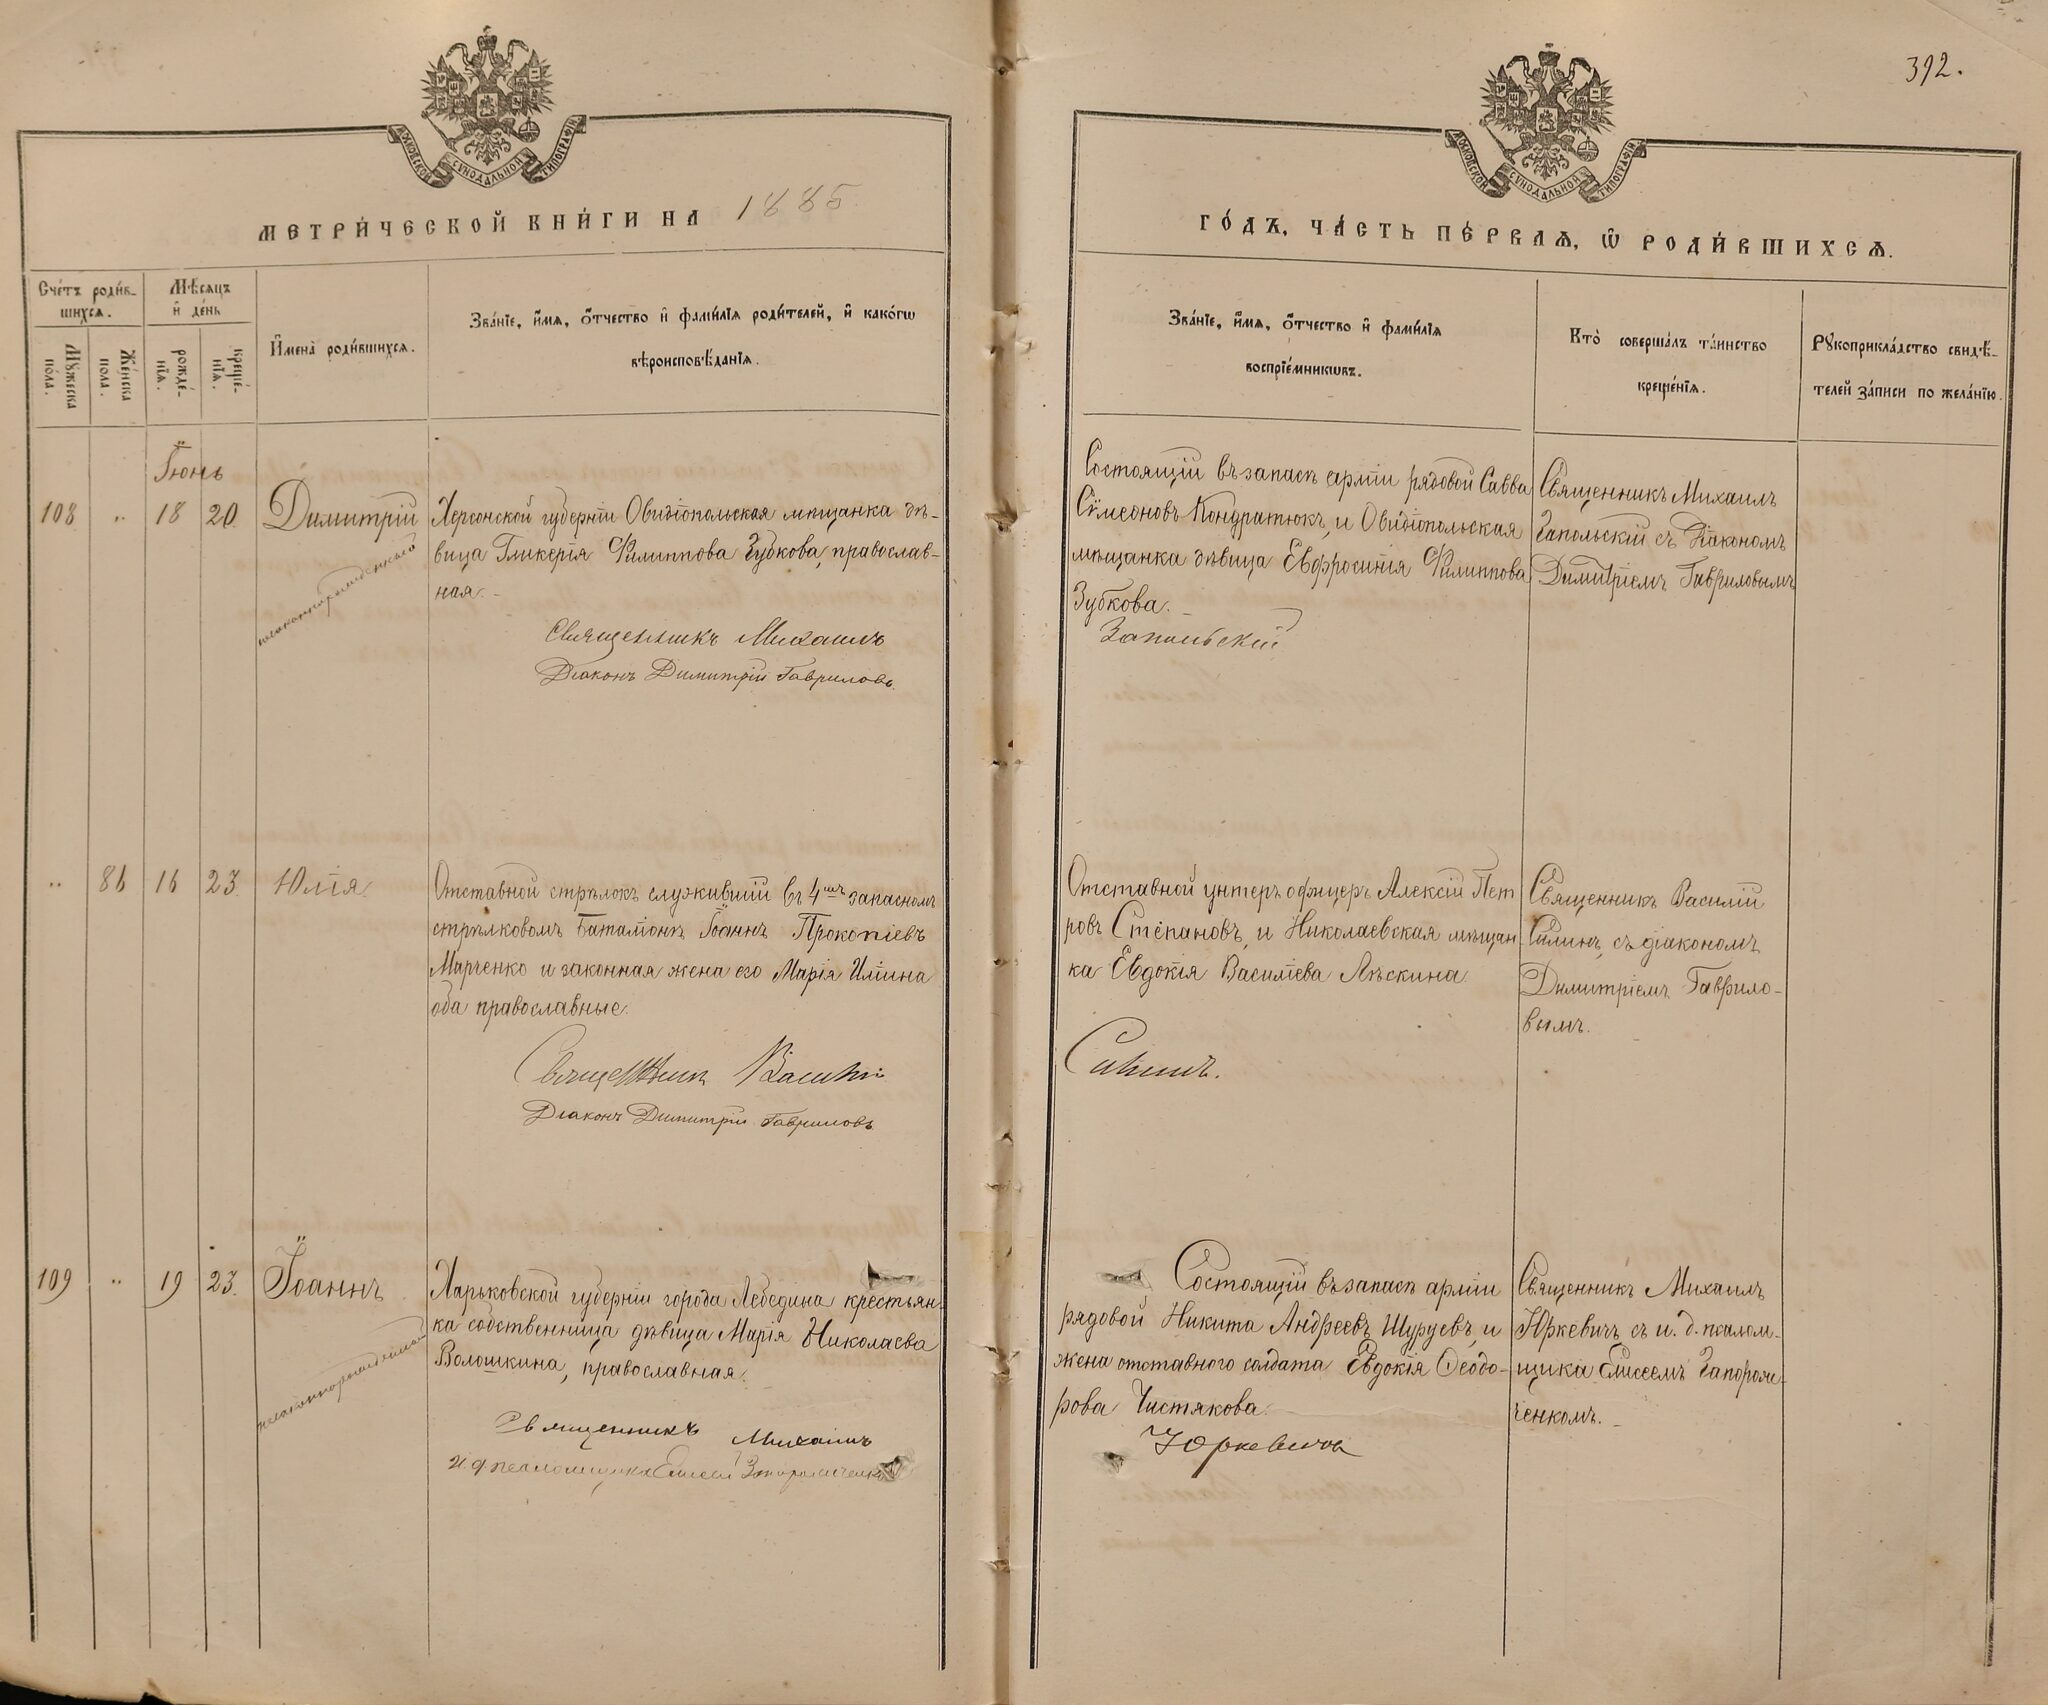 392.
МОСКОВСКОЙ СѴНОДАЛЬНОЙ ТИПОГРАФІИ
МОСКОВСКОЙ СѴНОДАЛЬНОЙ ТИПОГРАФІИ
МЕТРИ́ЧЕСКОЙ КНИ́ГИ НА 1885
ГО́ДЪ, ЧА́СТЬ ПЕ́РВАѦ, Ѡ РОДИ́ВШИХСѦ.
Сче́тъ роди́в-
шихся.
Мѣ́сяцъ
и҆ де́нь
Мꙋ́жеска
пола.
Же́нска
пола.
рожде́-
нїѧ.
креще́-
нїѧ.
И҆мена̀ роди́вшихся.
Зва́нїе, и҆́мя, ѻ҆́тчество и҆ фами́лїя роди́телей, и҆ како́гѡ
вѣроисповѣ́данїя.
Зва́нїе, и҆́мя, ѻ҆́тчество и҆ фами́лїя
воспрїе́мникѡвъ.
Кто̀ соверша́лъ та́инство
креще́нїя.
Рꙋкоприкла́дство свидѣ́-
телей за́писи по жела́нїю.
Іюнь
108 " 18 20. Димитрій
незаконнорожденный
Херсонской губерніи Овидіопольская мѣщанка дѣ-
вица Гликерія Филиппова Зубкова, православ-
ная.
Священникъ Михаилъ
Діаконъ Димитрій Гавриловъ.
Состоящій въ запасѣ арміи рядовой Савва
Сѵмеоновъ Кондратюкъ, и Овидіопольская
мѣщанка дѣвица Евфросинія Филиппова
Зубкова.
Запольскій
Священникъ Михаилъ
Запольскій съ Діакономъ
Димитріемъ Гавриловымъ
" 86 16 23. Юлія.
Отставной стрѣлокъ служившій въ 4мъ запасномъ
стрѣлковомъ баталіонѣ Іоаннъ Прокопіевъ
Марченко и законная жена его Марія Ильина
оба православные.
Священникъ Василій
Діаконъ Димитрій Гавриловъ
Отставной унтеръ офицеръ Алексій Пет
ровъ Степановъ, и Николаевская мѣщан-
ка Евдокія Василіева Лѣскина.
Силинъ.
Священникъ Василій
Силинъ, съ діакономъ
Димитріемъ Гаврило-
вымъ.
109 " 19 23. Іоаннъ
незаконнорожденный
Харьковской губерніи города Лебедина крестьян-
ка собственница дѣвица Марія Николаева
Волошкина, православная.
Священникъ Михаилъ
И. д. псаломщика Елисей Запорожченко
Состоящій въ запасѣ арміи
рядовой Никита Андреевъ Шуруевъ, и
жена отставного солдата Евдокія Ѳеодо-
рова Чистякова.
Юркевичъ
Священникъ Михаилъ
Юркевичъ, съ и. д. псалом-
щика Елисеемъ Запорож-
ченкомъ.